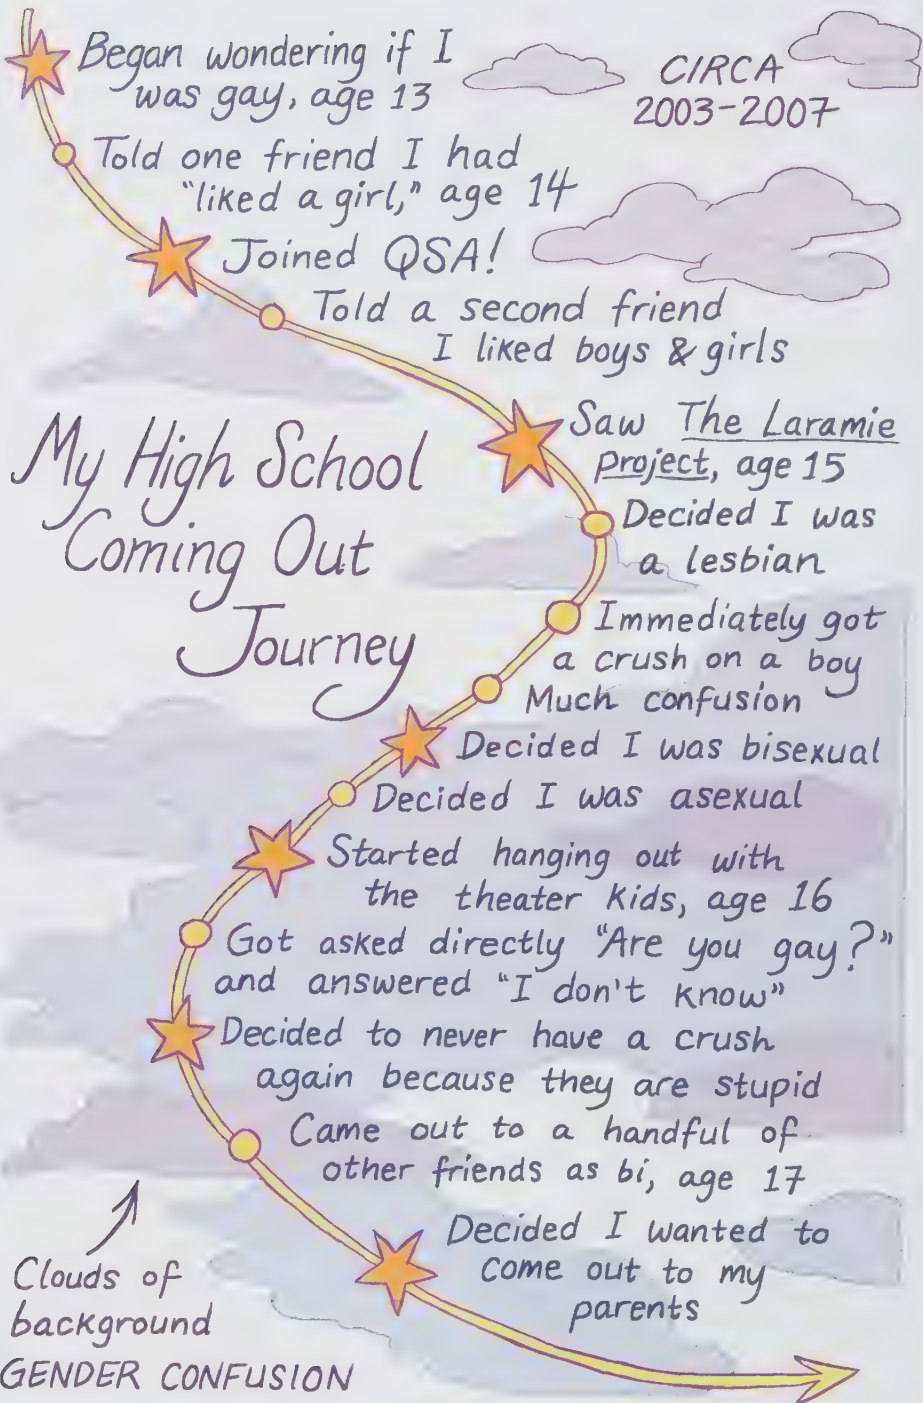 Began wondering if I
was gay, age 13
CIRCA
2003-2007
Told one friend I had
"liked a girl," age 14
Joined QSA!
Told a second friend
I liked boys & girls
My High School
Coming Out
Journey
Saw The Laramie
Project, age 15
Decided I was
a lesbian
Immediately got
a crush on a boy
Much confusion
Decided I was bisexual
Decided I was asexual
Started hanging out with
the theater kids, age 16
Got asked directly "Are you gay?"
and answered "I don't know"
Decided to never have a crush
again because they are stupid
Came out to a handful of
other friends as bi, age 17
Decided I wanted to
come out to my
parents
Clouds of
background
GENDER CONFUSION